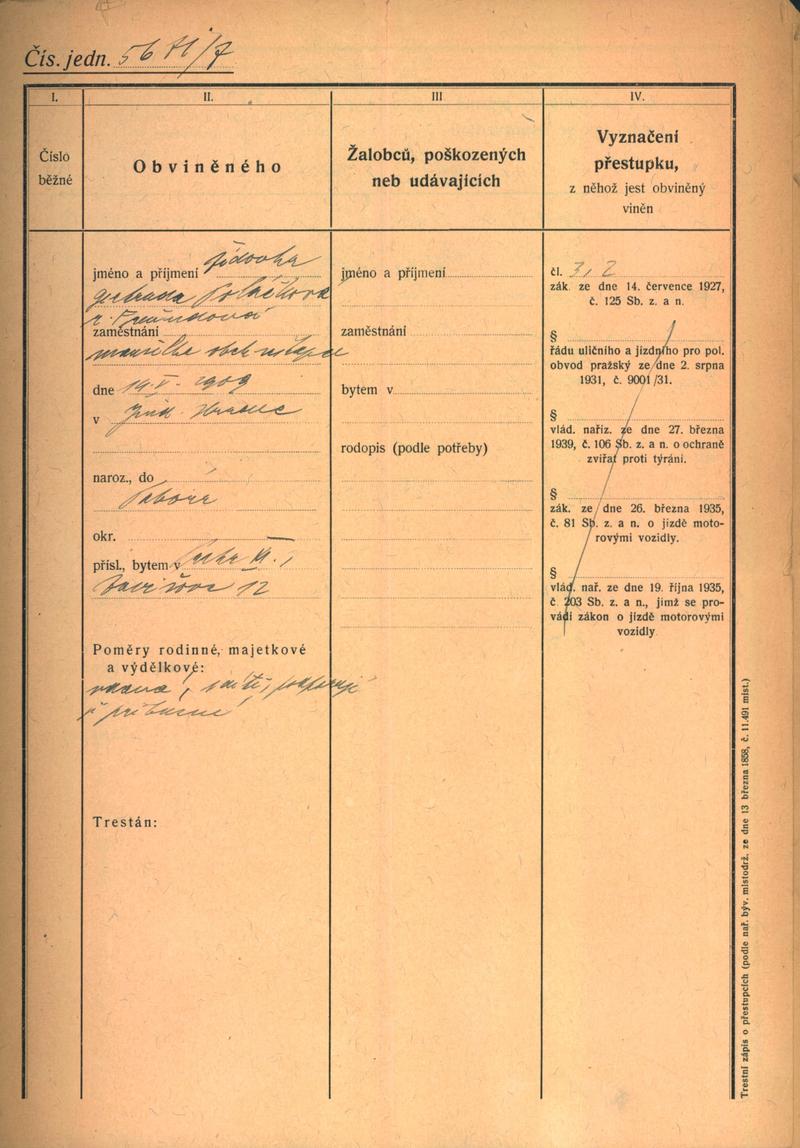 Čís. jedn. 56
I.
II.
III
IV.
Číslo
běžné
Obviněného
Žalobců, poškozených
neb udávajících
Vyznačení
přestupku,
z něhož jest obviněný
viněn
jméno a příjmení židovka
Gertruda Poláčková
r. Freundová
zaměstnání
manželka obch. zástupce
dne 14.V. 1909
v Jind. Hradec
naroz., do
Tábora
okr.
přísl., bytem v Praha
12
Poměry rodinné, majetkové
a výdělkové:
vdaná, podporují
ji příbuzní
Trestán:
jméno a příjmení
zaměstnání
bytem v
rodopis (podle potřeby)
čl. 3, 2
zák. ze dne 14. července 1927,
č. 125 Sb. z. a n.
§
řádu uličního a jízdního pro pol.
obvod pražský ze dne 2. srpna
1931, č. 9001/31.
§
vlád. naříz. ze dne 27. března
1939, č. 106 Sb. z. a n. o ochraně
zvířat proti týrání.
§
zák. ze dne 26. března 1935,
č. 81 Sb. z. a n. o jízdě moto-
rovými vozidly.
§
vlád. nař. ze dne 19. října 1935,
č. 203 Sb. z. a n., jímž se pro-
vádí zákon o jízdě motorovými
vozidly
Trestní zápis o přestupcích (podle nař. býv. místodrž. ze dne 13 března 1858, č. 11.491 míst.)